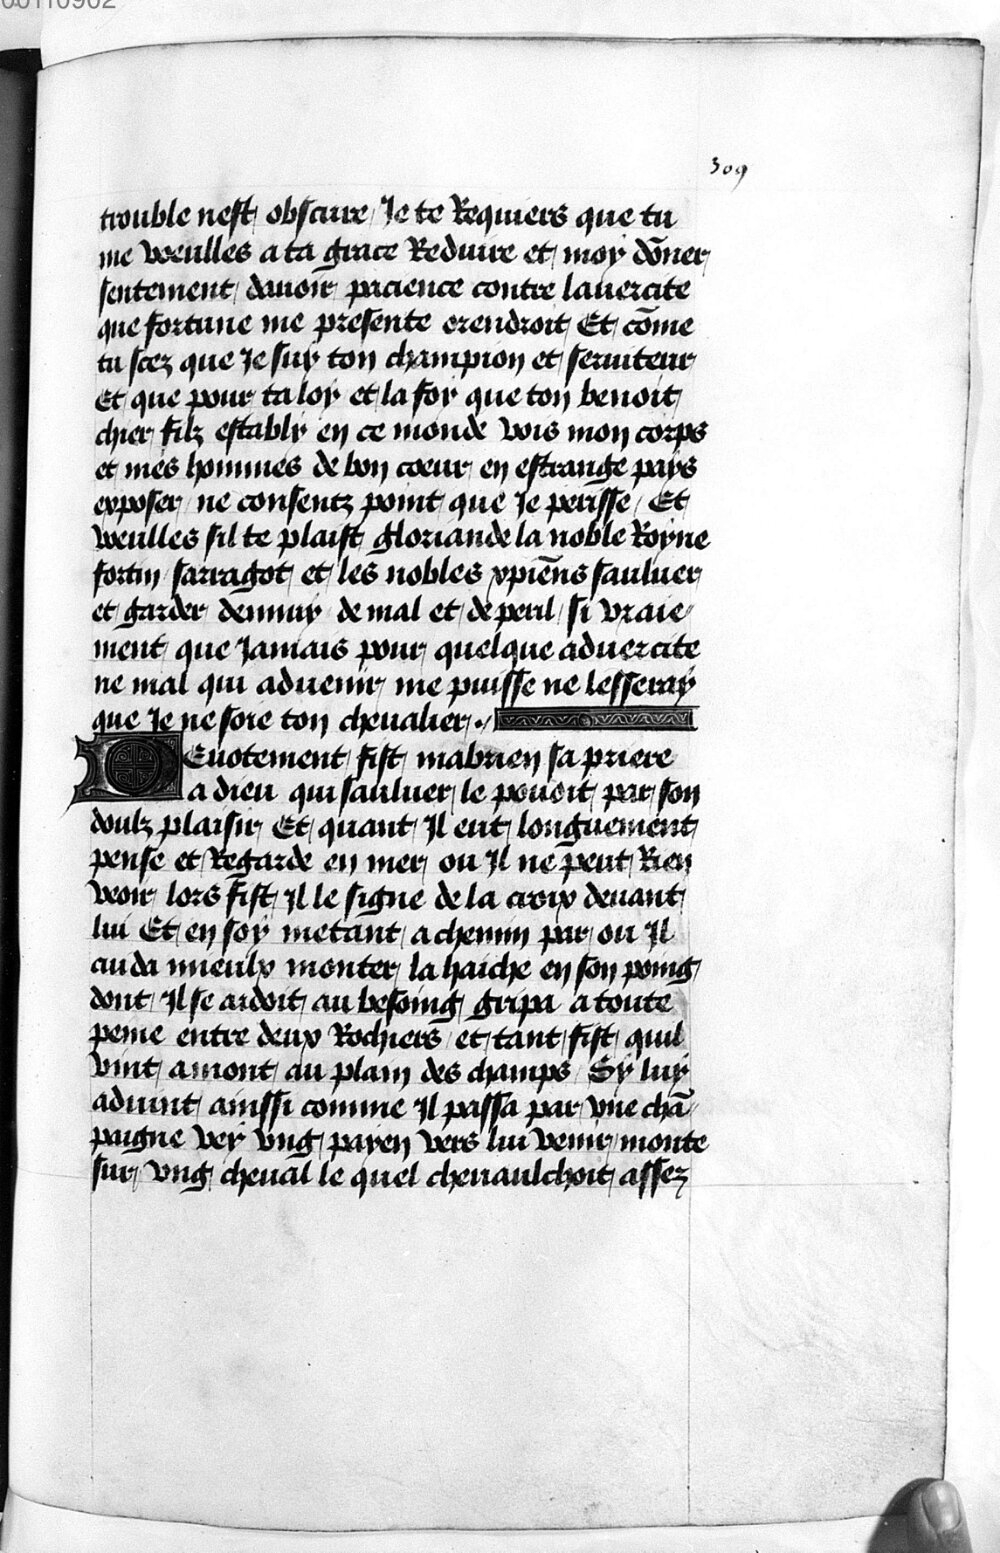 00110902
309
trouble nest obscure Je te Requiers que tu
me veeulles a ta grace Reduire et moy dōner
sentement dauoir pacience contre lauercite
que fortune me presente orendroit Et cōme
tu scez que Je suy ton champion et seruiteur
Et que pour ta loy et la foy que ton benoit
chier filz establÿ en ce monde vois mon corps
et mes hommes de bon coeur en estrange païs
exposer ne consentz point que Je perisse / Et
veeulles sil te plaist gloriande la noble Royne
fortin sarragot et les nobles xpiēns sauluer
et garder dennuy de mal et de peril / si vraie-
ment que Jamais pour quelque aduercite
ne mal qui aduenir me puisse ne lesseray
que Je ne soie ton cheualier ./
Deuotement fist mabrien sa priere
a dieu qui sauluer le pouoit par son
doulz plaisir Et quant Il eut longuement
pense et Regarde en mer ou Il ne peut Rien
veoir lors fist Il le signe de la croix deuant
lui Et en soy metant a chemin par ou Il
cuida mieulx monter la haiche en son poing
dont Il se aidoit au besoing gripa a toute
peine entre deux Rochiers et tant fist quil
vint amont au plain des champs Sy luy
aduint ainssi comme Il passa par vne chā-
paigne vey vng payen vers lui venir monte
sur vng cheual le quel cheuaulchoit assez